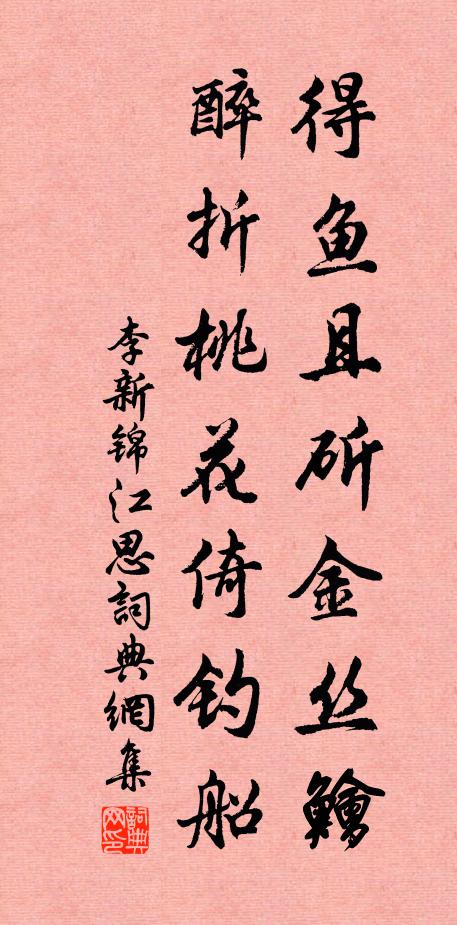 得鱼且斫金丝鲙
醉折桃花倚钓船
李新锦江思詞典網集
詞典网印